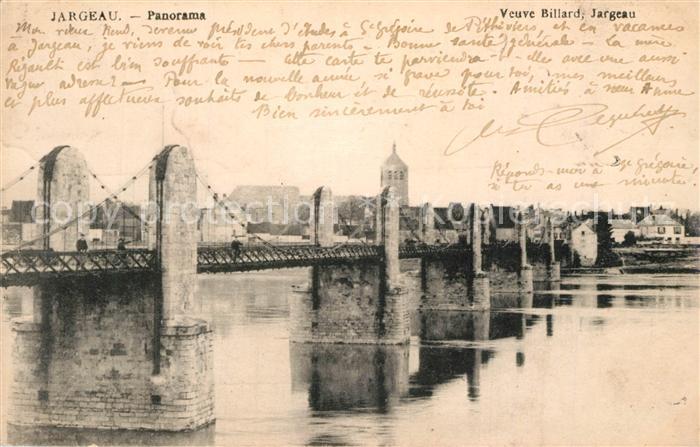 JARGEAU. — Panorama
Veuve Billard, Jargeau
Mon vieux René, devenu président d'études à St Grégoire de Pithiviers, et en vacances
à Jargeau, je viens de voir tes chers parents — Bonne santé générale — la mère
Rigault est bien souffrante — Cette carte te parviendra-t-elle avec une aussi
vague adresse? — Pour la nouvelle année, si grave pour toi, mes meilleurs
et plus affectueux souhaits de bonheur et de réussite. Amitiés à sœur Anne
Bien sincèrement à toi
Réponds-moi à St Grégoire,
si tu as une minute